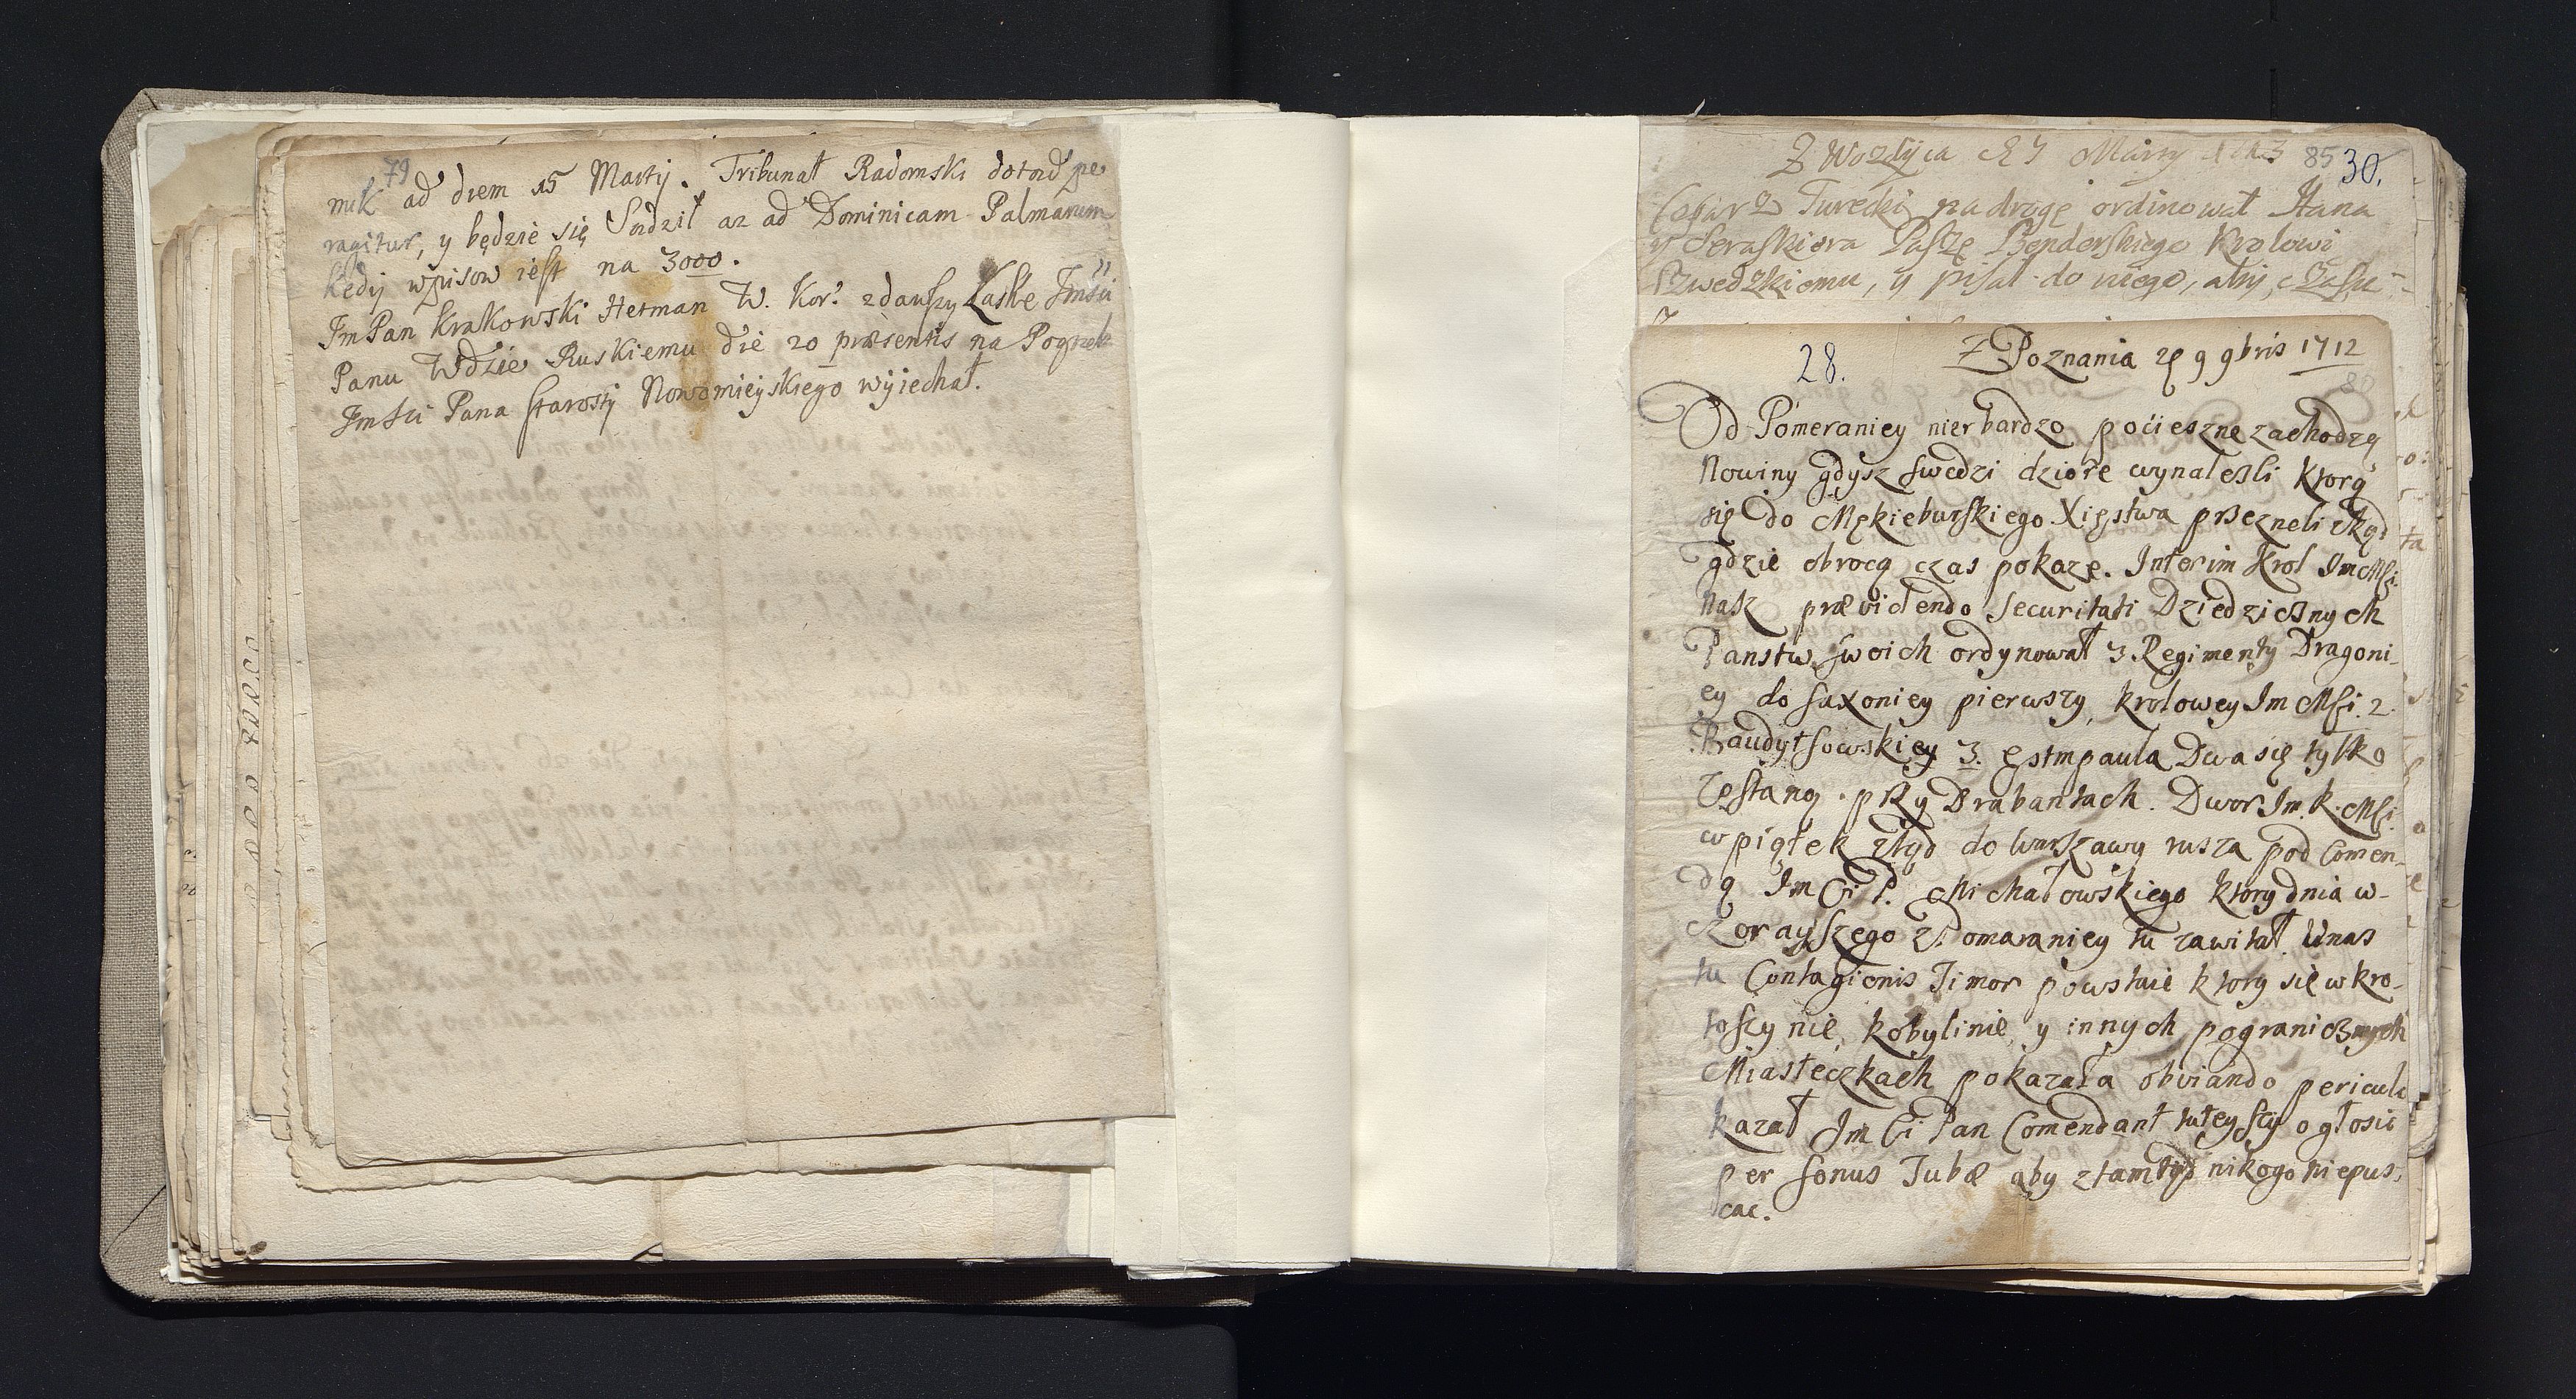 79
mik ad diem 15 Martij. Tribunał Radomski dotond pe
ragitur, y będzie się Sodził az ad Dominicam Palmarum
kędij wpisow iest na 3000.
Jm Pan Krakowski Hetman W. Kor: zdawszy Laskę Jmści
Panu Wdzie Ruskiemu die 20 præsentis na Pogrzeb
Jmści Pana Starosty Nowomieyskiego wyiechał.
Z Martij 85 30.
Turecki na drogę ordinował Hana
y Seraskiera Paszę Benderskiego Krolowi
Szwedzkiemu, y pisał do niego, aby
28. Z Poznania 9 9bris 1712
Od Pomeraniey nier bardzo pocieszne zachodzą
Nowiny gdysz swedzi dziore wynalesli ktorą
się do Mękieburskiego Xięstwa przezneli skąd
gdzie obrocą czas pokaze. Interim Krol Im Msi
nasz prævidendo securitati Dziedzicznych
Panstw swoich ordynował 3 Regimenty Dragoni-
ey do saxoniey pierwszy krolowey Im Msi. 2.
Baudytsowskiey 3. Estmpaula Dwa się tylko
zostaną przy Drabantach. Dwor Im. K. Msi.
w piątek ztąd do Warszawy rusza pod Comen-
dą Im Ci P. Michałowskiego ktory dnia w-
czorayszego z Pomaraniey tu zawitał. Unas
tu Contagionis Timor powstaie ktory się w kro-
toszynie, kobylinie, y innych pogranicznych
Miasteczkach pokazała obviando pericula
kazał Im Ci Pan Comendant tuteyszy ogłosic
per sonus Tubæ aby ztamtąd nikogo niepus,
cac.